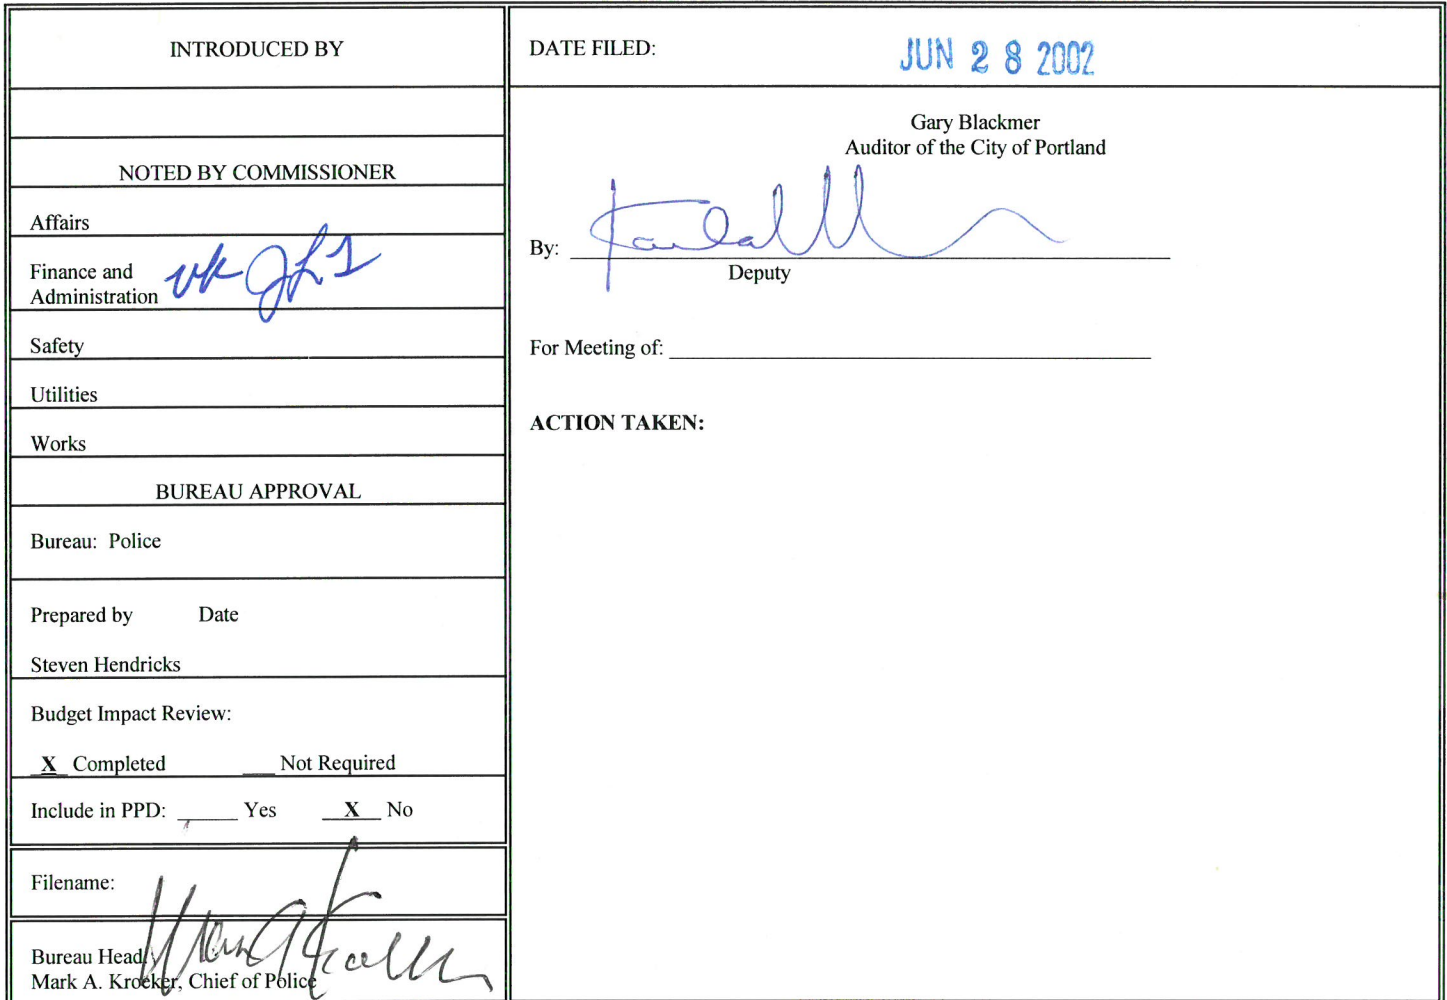 INTRODUCED BY
NOTED BY COMMISSIONER
Affairs
Finance and
Administration
Safety
Utilities
Works
BUREAU APPROVAL
Bureau: Police
Prepared by Date
Steven Hendricks
Budget Impact Review:
X Completed ___ Not Required
Include in PPD: ______ Yes X No
Filename:
Bureau Head:
Mark A. Kroeker, Chief of Police
DATE FILED: JUN 28 2002
Gary Blackmer
Auditor of the City of Portland
By:
Deputy
For Meeting of:
ACTION TAKEN: